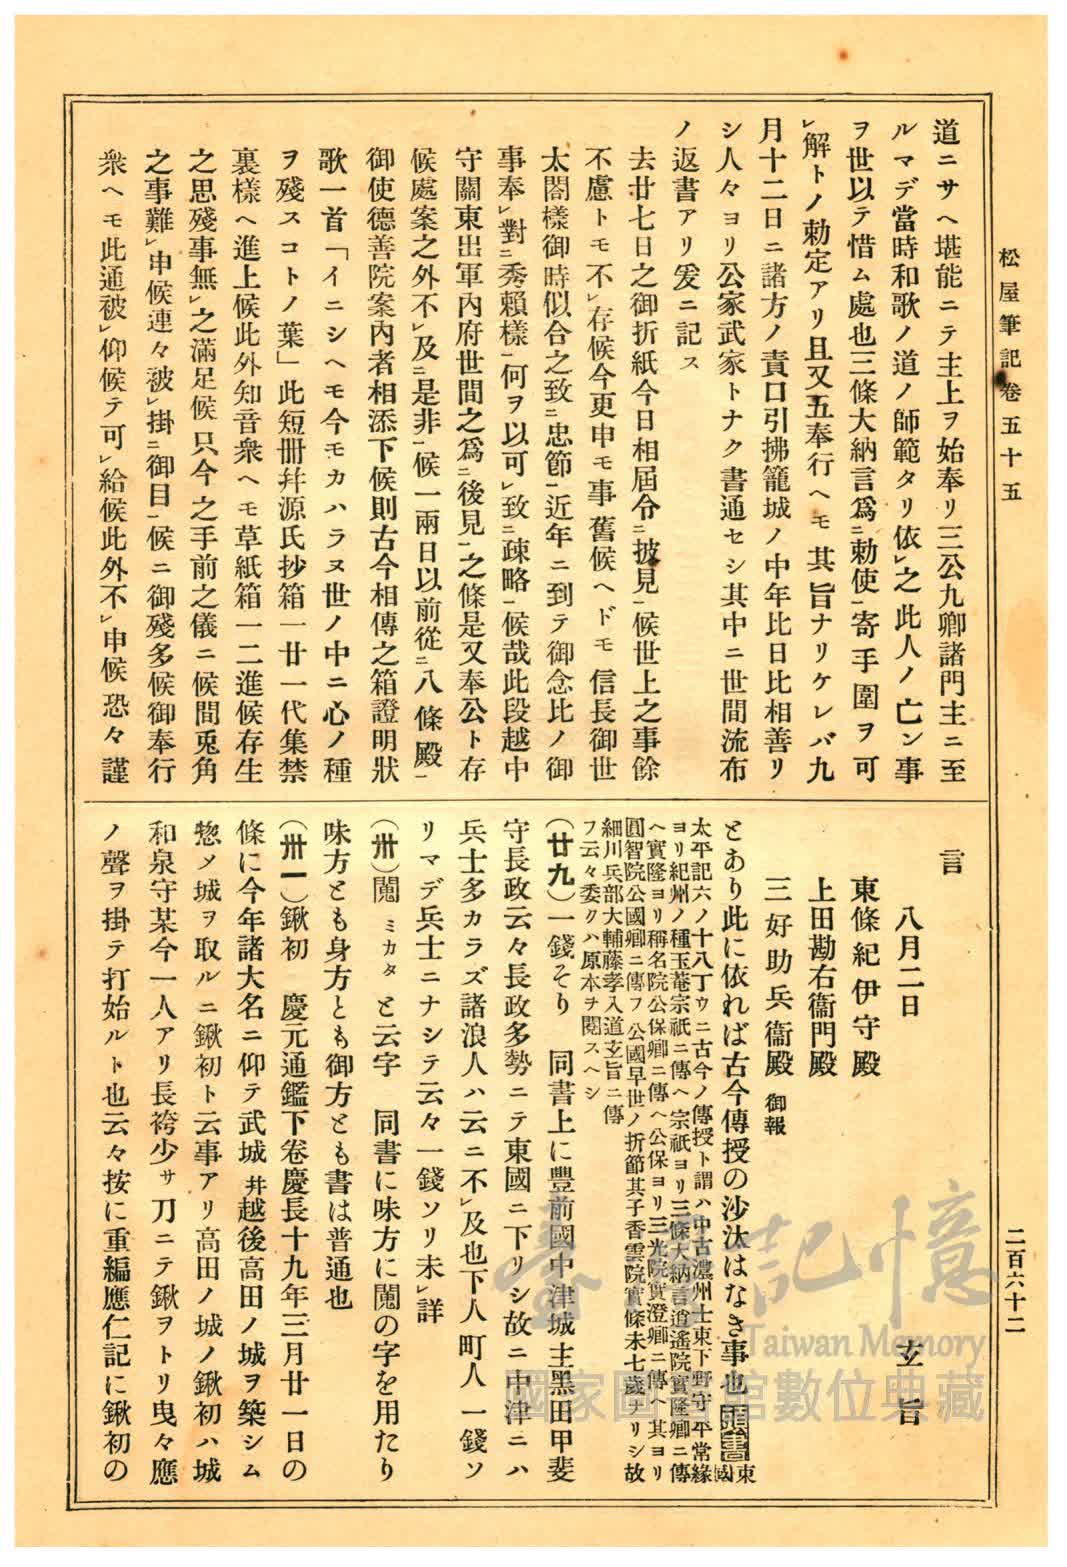 松屋筆記卷五十五
二百六十二
道ニサヘ堪能ニテ主上ヲ始奉リ三公九卿諸門主ニ至
ルマデ當時和歌ノ道ノ師範タリ依レ之此人ノ亡ン事
ヲ世以テ惜ム處也三條大納言爲ニ勅使一寄手圍ヲ可
レ解トノ勅定アリ且又五奉行ヘモ其旨ナリケレバ九
月十二日ニ諸方ノ責口引拂籠城ノ中年比日比相善リ
シ人々ヨリ公家武家トナク書通セシ其中ニ世間流布
ノ返書アリ爰ニ記ス
去廿七日之御折紙今日相屆令ニ披見一候世上之事餘
不慮トモ不レ存候今更申モ事舊候ヘドモ信長御世
太閤樣御時似合之致ニ忠節一近年ニ到テ御念比ノ御
事奉レ對ニ秀賴樣一何ヲ以可レ致ニ疎略一候哉此段越中
守關東出軍內府世間之爲ニ後見一之條是又奉公ト存
候處案之外不レ及ニ是非一候一兩日以前從ニ八條殿一
御使德善院案內者相添下候則古今相傳之箱證明狀
歌一首「イニシヘモ今モカハラヌ世ノ中ニ心ノ種
ヲ殘スコトノ葉」此短冊幷源氏抄箱一廿一代集禁
裏樣ヘ進上候此外知音衆ヘモ草紙箱一二進候存生
之思殘事無レ之滿足候只今之手前之儀ニ候間兎角
之事難レ申候連々被レ掛ニ御目一候ニ御殘多候御奉行
衆ヘモ此通被レ仰候テ可レ給候此外不レ申候恐々謹
言
八月二日
玄旨
東條紀伊守殿
上田勘右衞門殿
三好助兵衞殿 御報
とあり此に依れば古今傳授の沙汰はなき事也頭書東國
太平記六ノ十八丁ウニ古今ノ傳授ト謂ハ中古濃州士東下野守平常緣
ヨリ紀州ノ種玉菴宗祇ニ傳ヘ宗祇ヨリ三條大納言逍遙院實隆卿ニ傳
ヘ實隆ヨリ稱名院公保卿ニ傳ヘ公保ヨリ三光院實澄卿ニ傳ヘ其ヨリ
圓智院公國卿ニ傳フ公國早世ノ折節其子香雲院實條未七歲ナリシ故
細川兵部大輔藤孝入道玄旨ニ傳
フ云々委クハ原本ヲ閱スヘシ
(廿九)一錢そり 同書上に豐前國中津城主黑田甲斐
守長政云々長政多勢ニテ東國ニ下リシ故ニ中津ニハ
兵士多カラズ諸浪人ハ云ニ不レ及也下人町人一錢ソ
リマデ兵士ニナシテ云々一錢ソリ未レ詳
(卅)䦧ミカタと云字 同書に味方に䦧の字を用たり
味方とも身方とも御方とも書は普通也
(卅一)鍬初 慶元通鑑下卷慶長十九年三月廿一日の
條に今年諸大名ニ仰テ武城幷越後高田ノ城ヲ築シム
惣〆城ヲ取ルニ鍬初ト云事アリ高田ノ城ノ鍬初ハ城
和泉守某今一人アリ長袴少サ刀ニテ鍬ヲトリ曳々應
ノ聲ヲ掛テ打始ルト也云々按に重編應仁記に鍬初の
臺灣記憶
Taiwan Memory
國家圖書館數位典藏